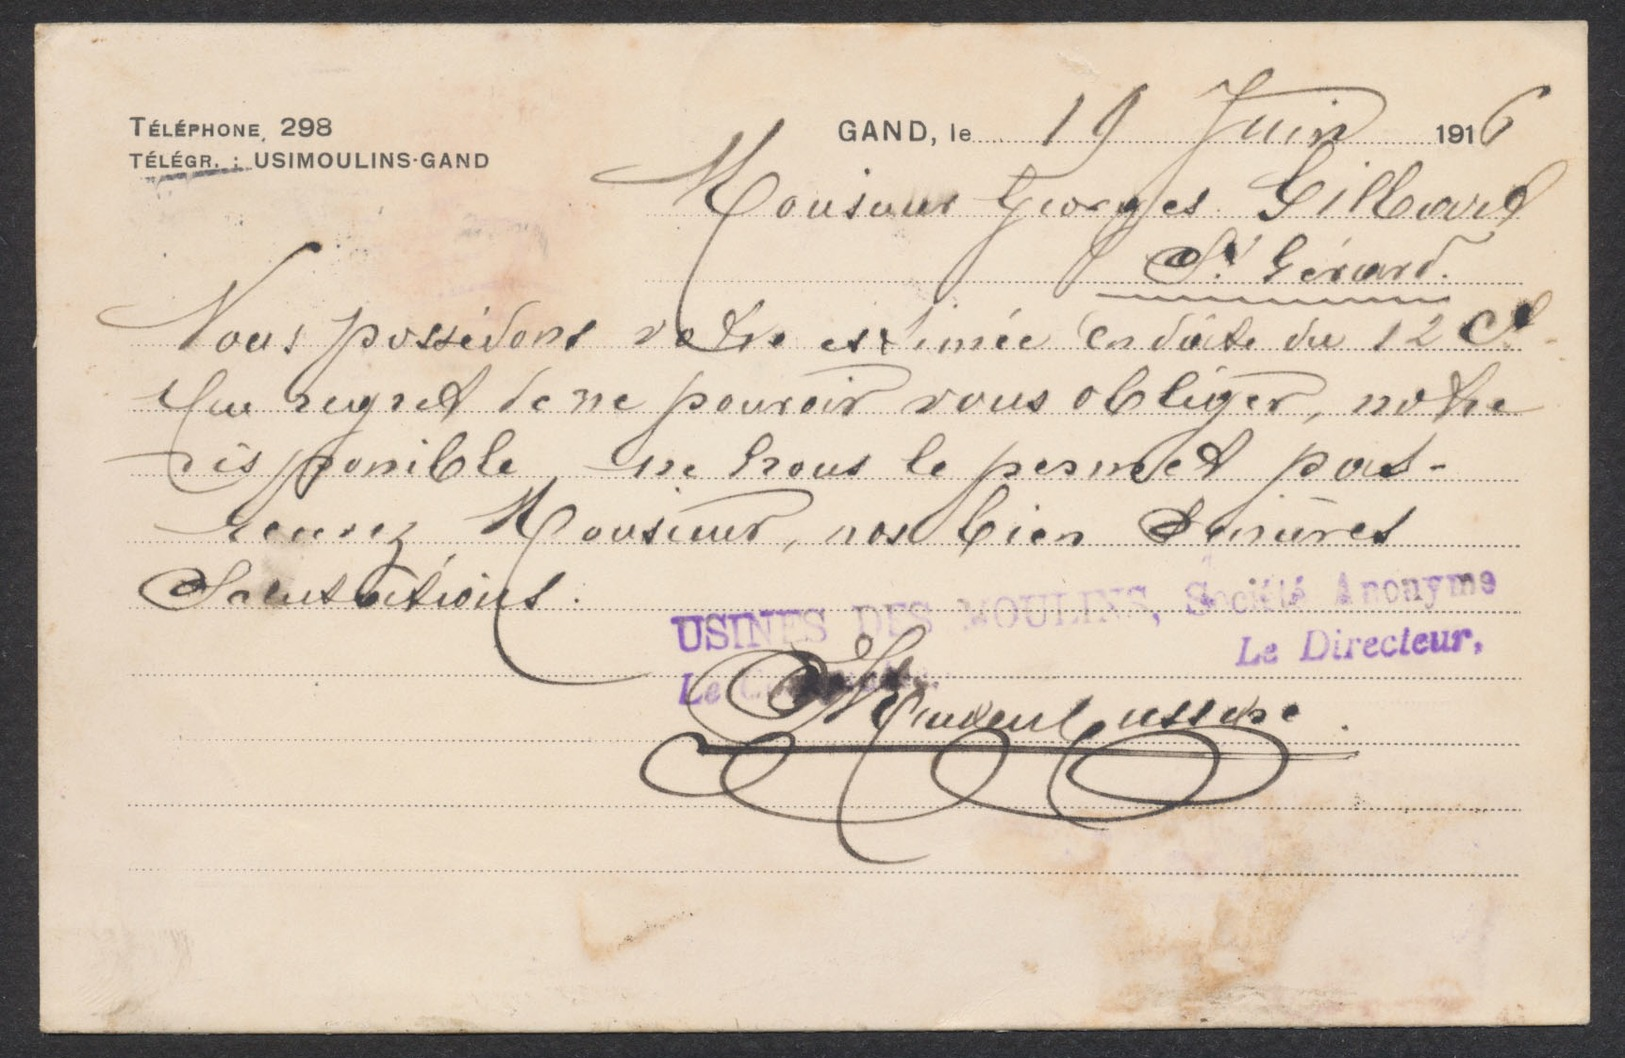 TÉLÉPHONE, 298
TÉLÉGR. : USIMOULINS-GAND
GAND, le 19 Juin 1916
Monsieur Georges Gilbard
St Gérard.
Nous possédons votre estimée en date du 12 Ct
regret de ne pouvoir vous obliger, notre
disponible ne nous le permet pas-
recevez Monsieur, nos bien sincères
Salutations.
USINES DES MOULINS, Société Anonyme
Le Directeur,
Le